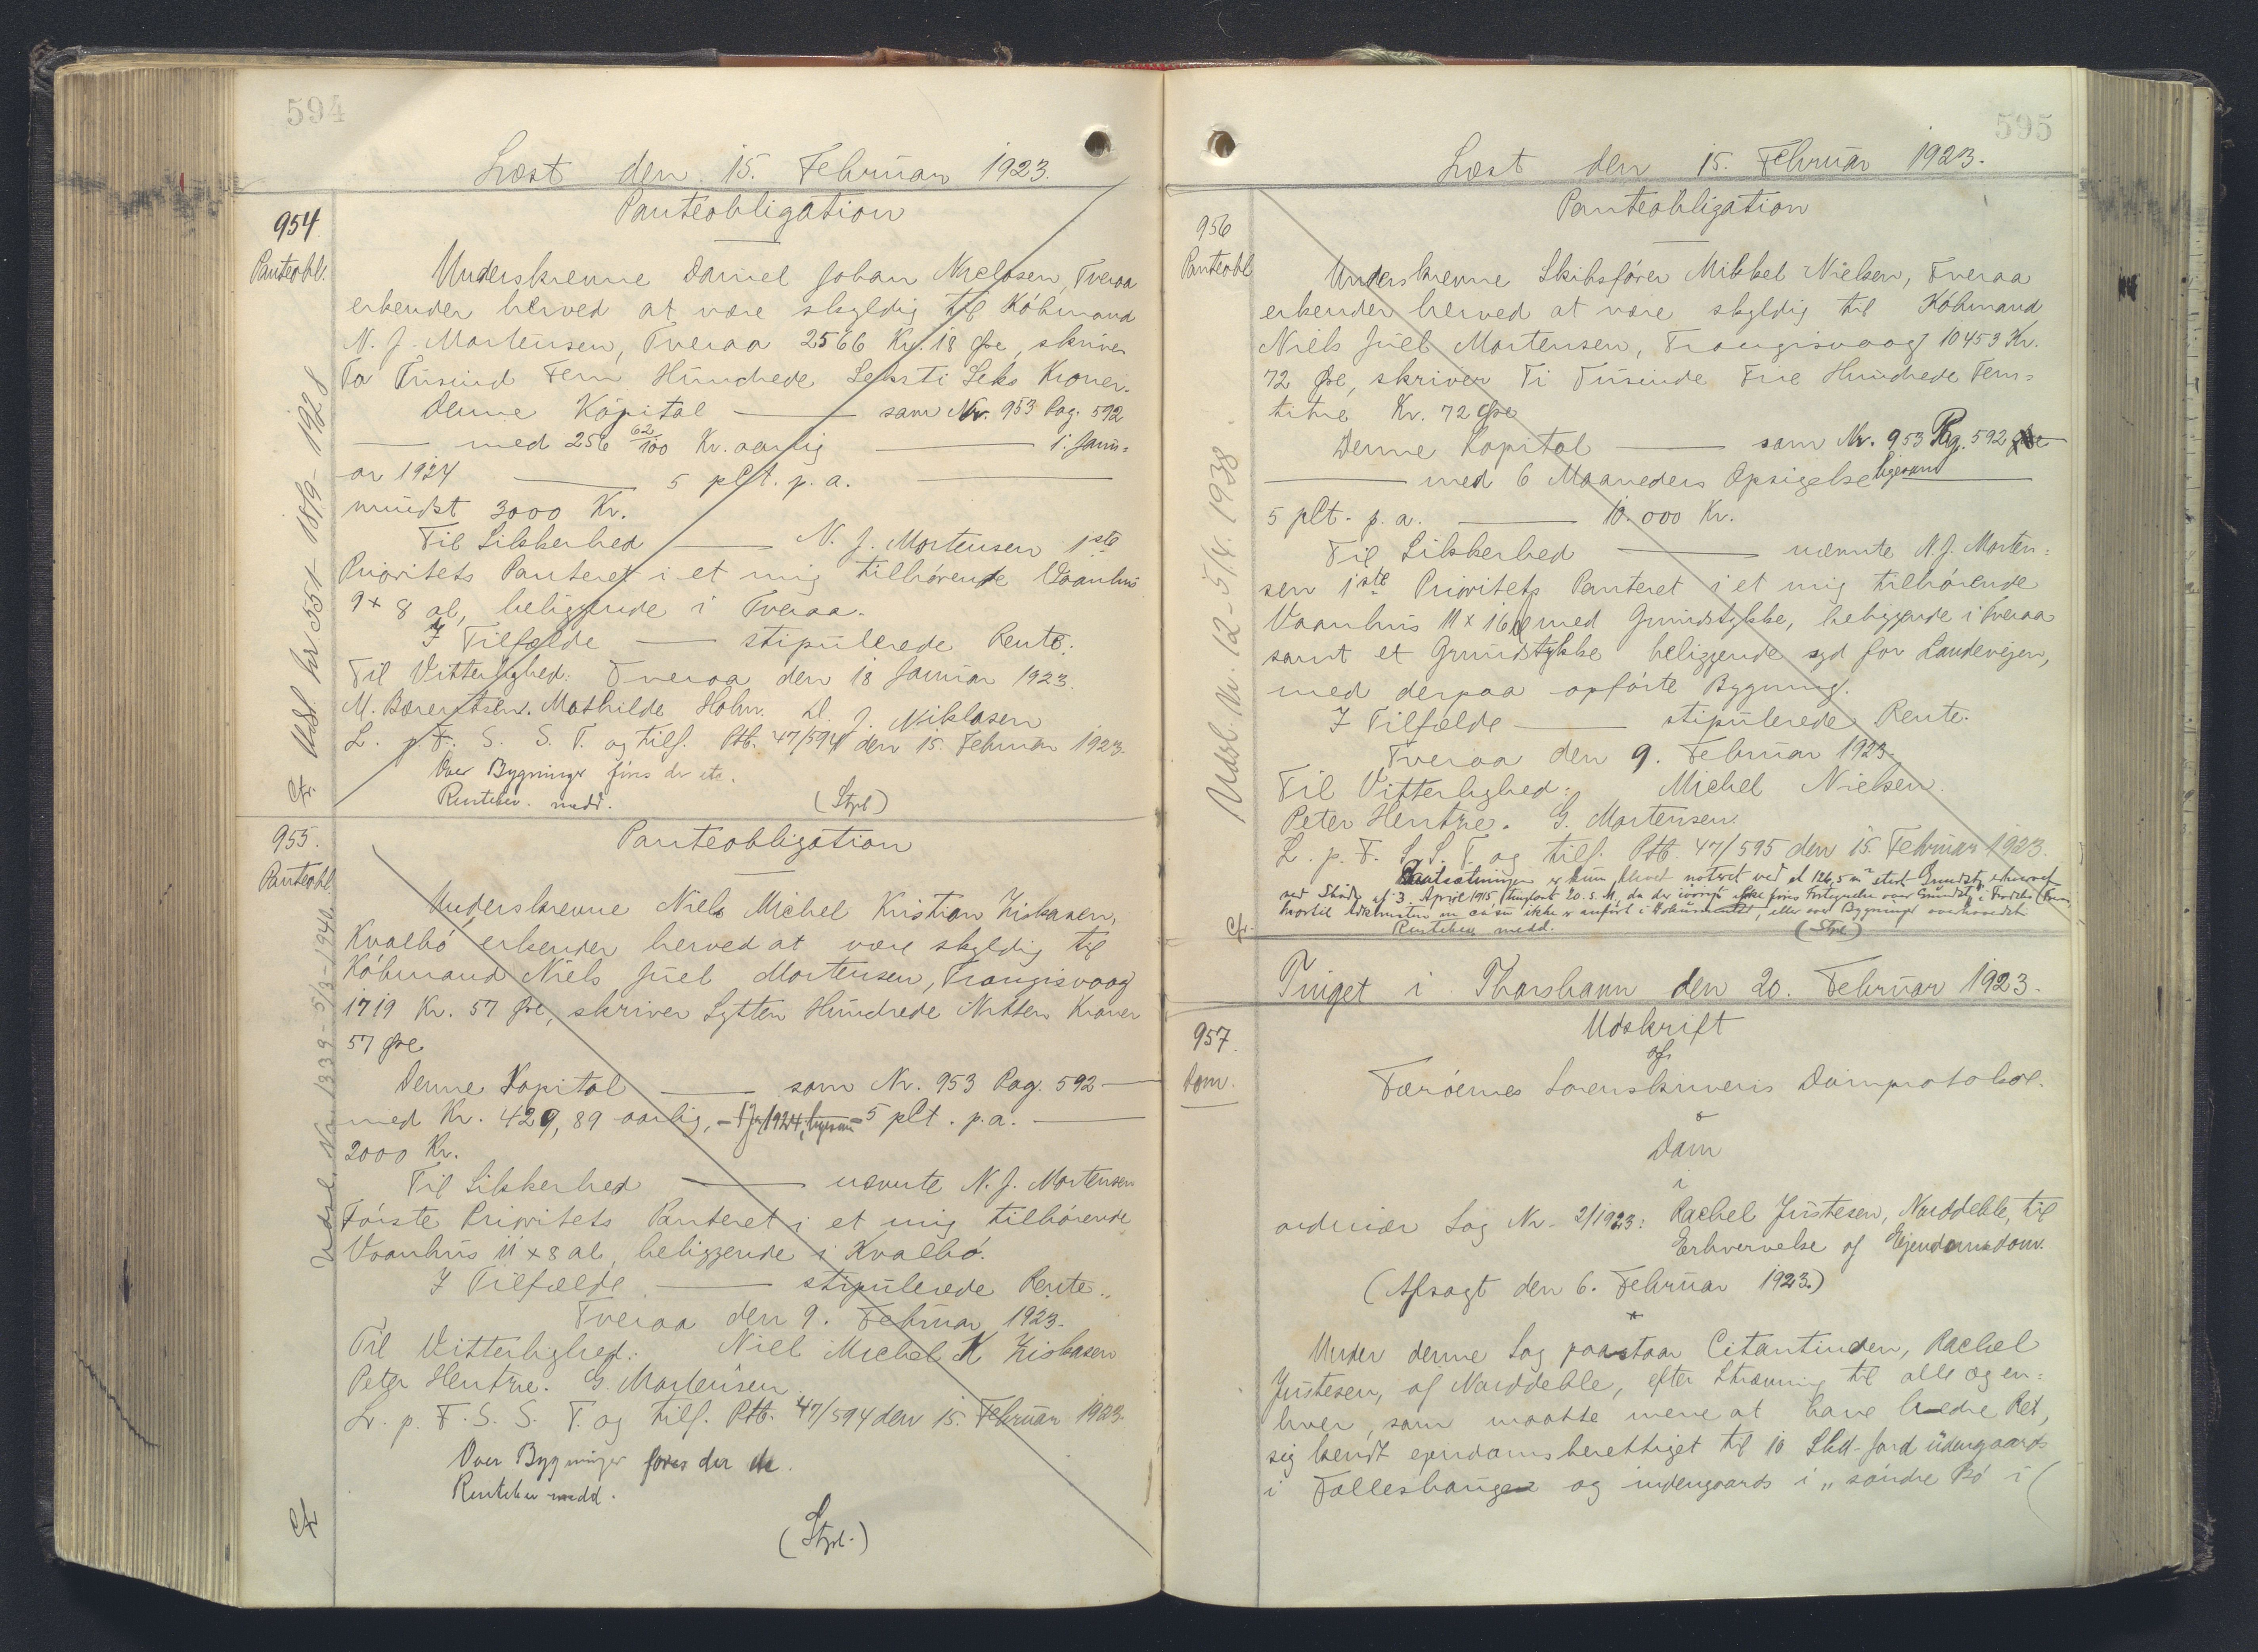 594
Læst den 15. Februar 1923.
954
Panteobl.
Panteobligation
Underskrevne Daniel Johan Niclasen, Tveraa
erkender herved at være skyldig til Köbmand
N. J. Mortensen, Tveraa 2566 Kr. 18 Øre, skriver
To Tusind Fem Hundrede Seksti Seks Kroner.
Denne Kapital — som Nr. 953 Pag. 592
— med 256 62/100 Kr. aarlig — 1 Janu=
ar 1924 — 5 pCt. p. a. —
mindst 3000 Kr.
Til Sikkerhed — N. J. Mortensen 1ste
Prioritets Panteret i et mig tilhörende Vaanhus
9 x 8 al, beliggende i Tveraa.
I Tilfælde — stipulerede Rente.
Til Vitterlighed: Tveraa den 18 Januar 1923.
M. Bærentsen. Mathilde Holm. D. J. Niklasen
L. p. F. S. S. T. og tilf. Ptb. 47/594 den 15. Februar 1923.
Over Bygninger fines der etc.
Rentebev. medd.
(Styl)
Cfr. Udsl. Nr 551 18/9-1928
955.
Panteobl.
Panteobligation
Underskrevne Niels Michel Kristian Ziskasen,
Kvalbö, erkender herved at være skyldig til
Köbmand Niels Juel Mortensen, Trangisvaag
1719 Kr. 57 Øre, skriver Sytten Hundrede Nitten Kroner
57 Øre
Denne Kapital — som Nr. 953 Pag. 592 —
med Kr. 429,89 aarlig, — 1 Ja 1924, ligesom 5 pCt. p. a. —
2000 Kr.
Til Sikkerhed — nævnte N. J. Mortensen
Förste Prioritets Panteret i et mig tilhörende
Vaanhus 11 x 8 al, beliggende i Kvalbö.
I Tilfælde — stipulerede Rente.
Tveraa den 9. Februar 1923.
Til Vitterlighed: Niel Michel K Ziskasen
Peter Hentze. G. Mortensen.
L. p. F. S. S. T. og tilf. Ptb. 47/594 den 15. Februar 1923.
Over Bygninger fines der etc.
Rentebev medd.
(Styl.)
Cfr
Udsl. Nr. 1339 - 5/3-1940
595
Læst den 15. Februar 1923.
956
Panteobl
Panteobligation
Underskrevne Skibsförer Mikkel Nielsen, Tveraa
erkender herved at være skyldig til Köbmand
Niels Juel Mortensen, Trangisvaag 10453 Kr.
72 Øre, skriver Ti Tusinde Fire Hundrede Fem=
titre Kr. 72 Øre
Denne Kapital — som Nr. 953 Pag. 592
— med 6 Maaneders Opsigelse ligesom —
5 pCt. p. a. — 10.000 Kr.
Til Sikkerhed — nævnte N. J. Morten=
sen 1ste Prioritets Panteret i et mig tilhörende
Vaanhus 11 x 16 al med Grundstykke, beliggende i Tveraa
samt et Grundstykke beliggende syd for Landevejen,
med derpaa opförte Bygning.
I Tilfælde — stipulerede Rente.
Tveraa den 9. Februar 1923.
Til Vitterlighed: Michel Nielsen.
Peter Hentze. G. Mortensen.
L. p. F. S. S. T. og tilf. Ptb. 47/595 den 15. Februar 1923.
Pantsætningen er kun blevet noteret ved et 126,5 m² stort Grundst, erhvervet
ved Sköde af 3. April 1915, tinglæst 20. s. M, da der iövrigt ikke fines Fortegnelse over Grundst i Frodebö
hvortil ikke er anfört i Dokumentet, eller over Bygninger overhovedet
Rentebev medd. (Styl)
Cfr.
Udsl. Nr. 12 - 5/4. 1938.
Tinget i Thorshavn den 20. Februar 1923.
957.
Dom.
Udskrift
af
Færöernes Sorenskriveris Domprotokol.
Dom
i
ordinær Sag Nr. 2/1923: Rachel Justesen, Norddeble, til
Erhvervelse af Ejendomsdom.
(Afsagt den 6. Februar 1923.)
Under denne Sag paastaar Citantinden, Rachel
Justesen, af Norddeble, efter Stævning til alle og en=
hver, som maatte mene at have bedre Ret,
sig kendt ejendomsberettiget til 10 Skd. Jord üdengaards
i Fælleshaugen og indengaards i „söndre Bö i (